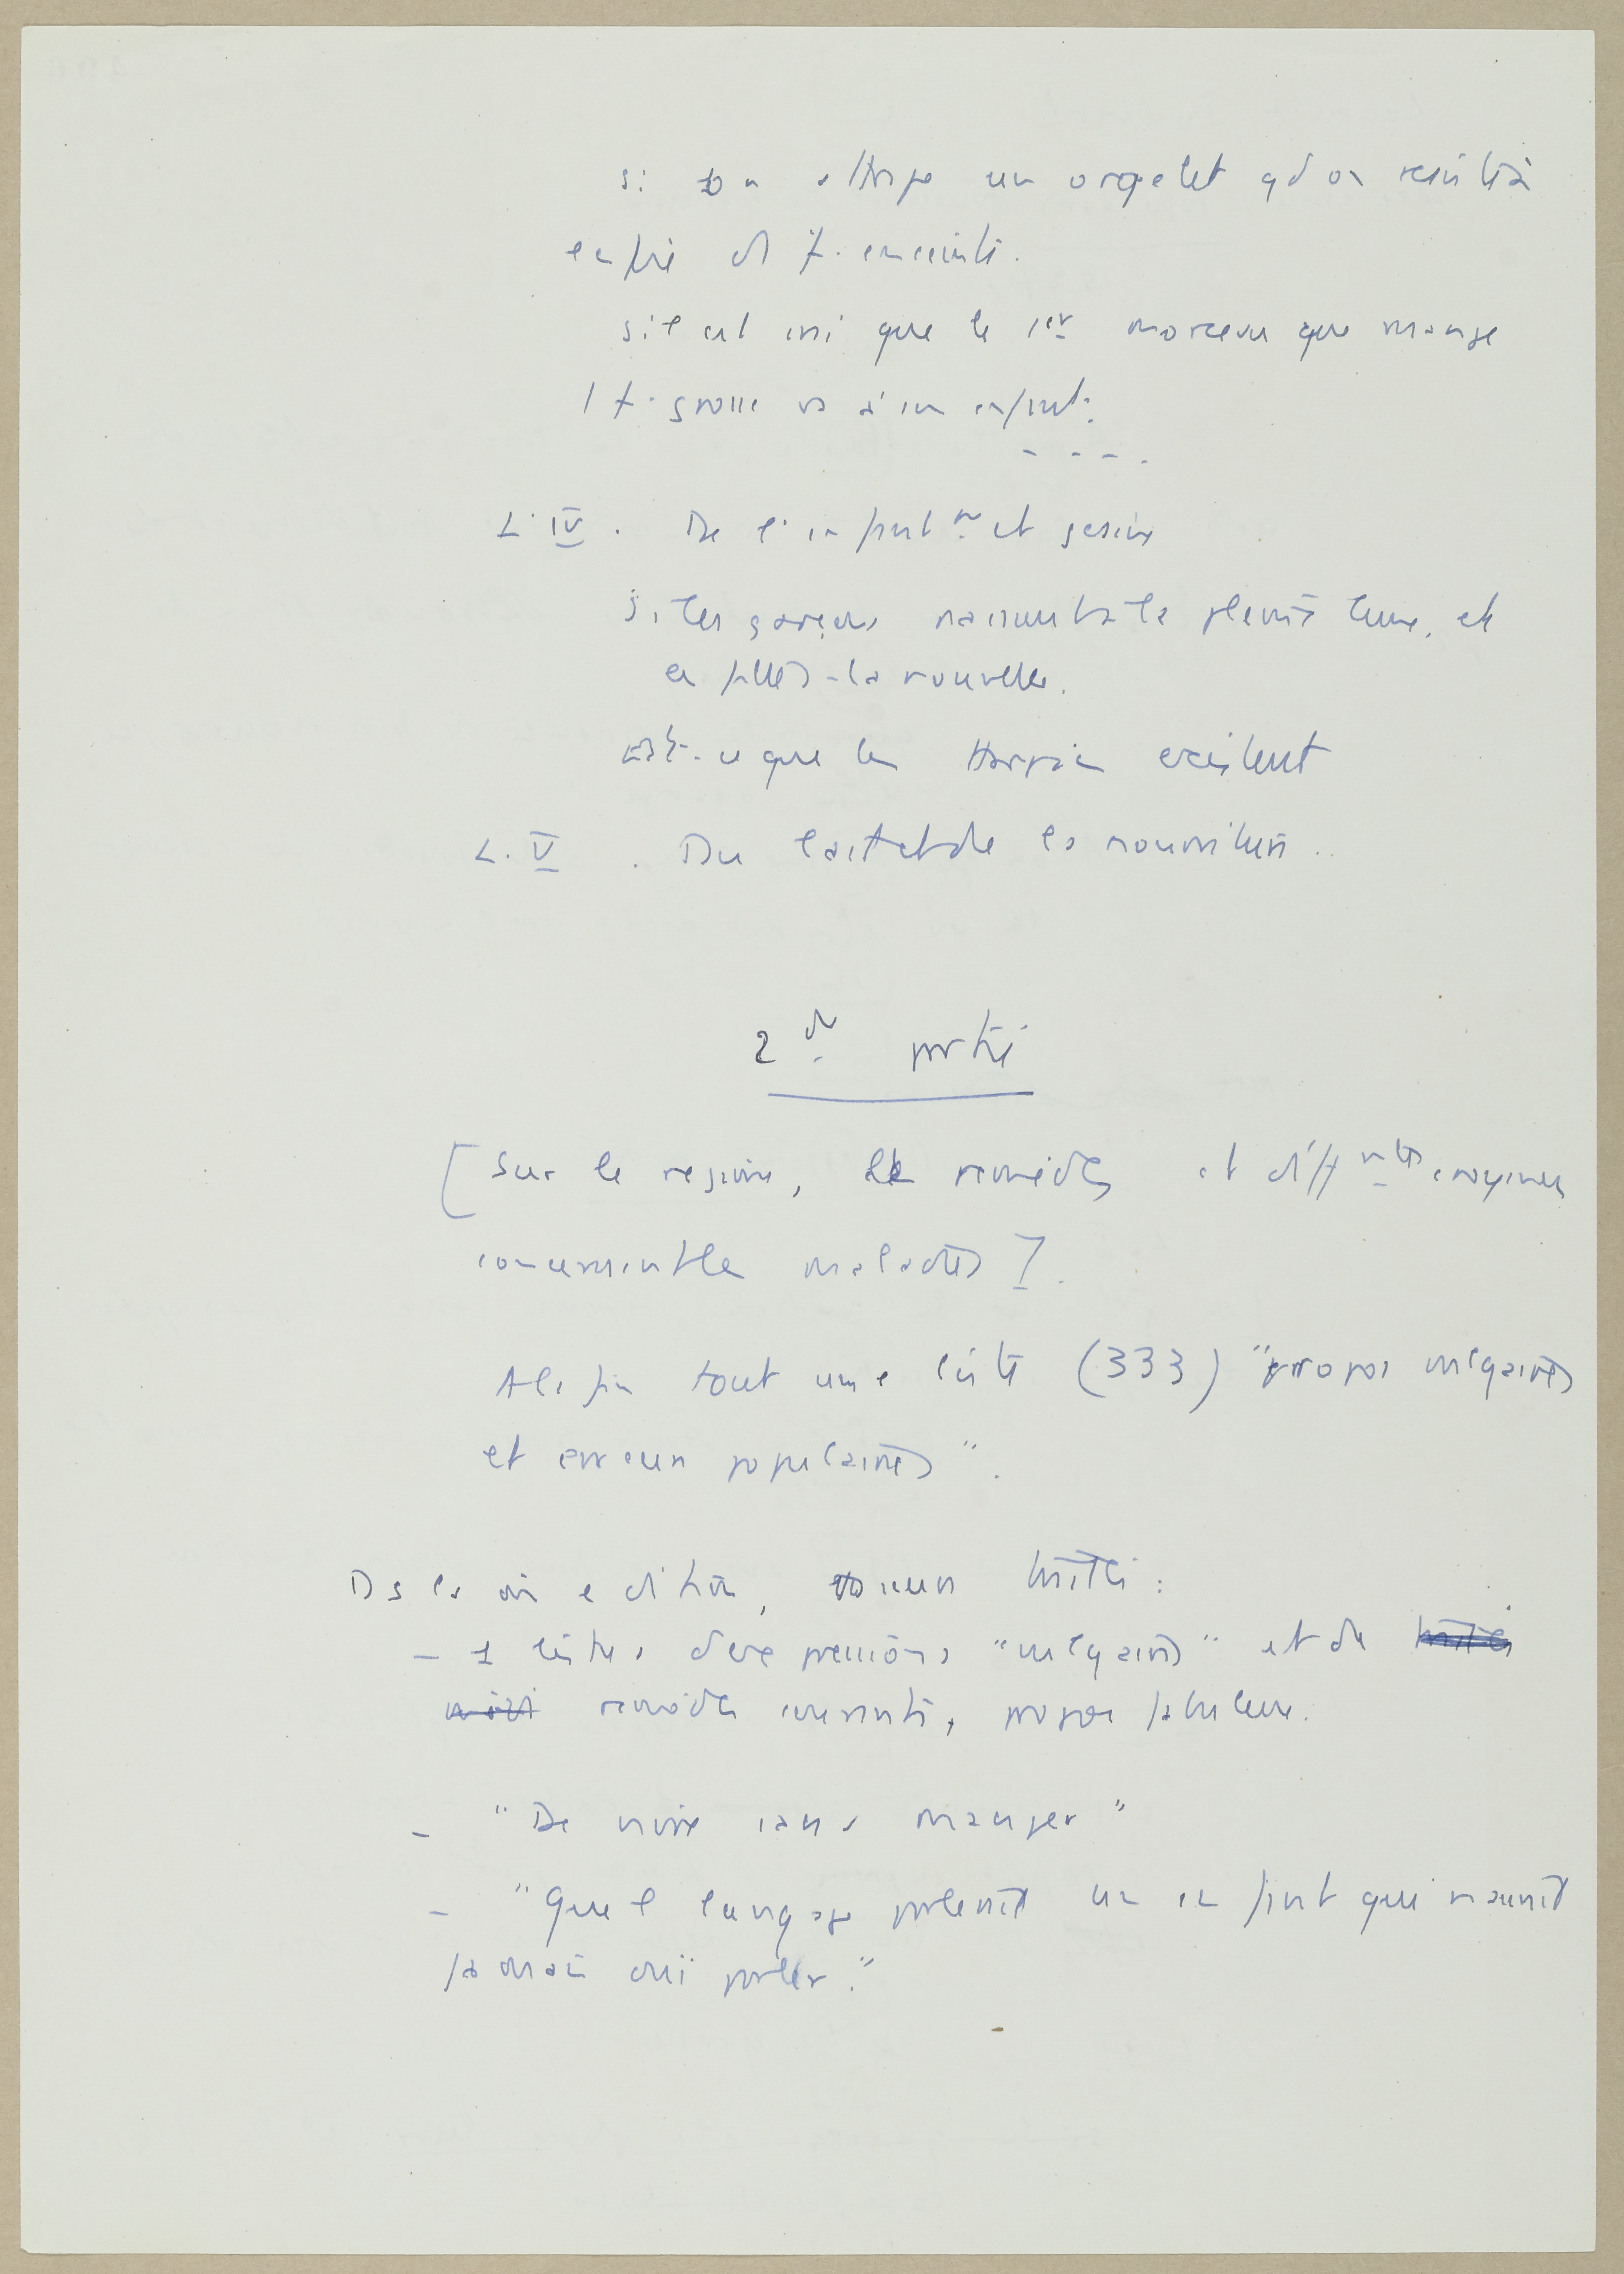 si on attrape un orgelet qd on résiste à
envie d'1 f. enceinte.
s'il est vrai que le 1er morceau que mange
1 f. grosse va à son enfant.
- - - -
L. IV . De l'enfantmt et gésine
Si les garçons naissent à la pleine lune, et
les filles à la nouvelle.
Est-ce que les Harpies existent
L. V . Du lait et de la nourriture.
2de partie
[Sur le régime, les remèdes et diffntes croyances
concernant les maladies].
A la fin tout une liste (333) "propos vulgaires
et erreurs populaires".
Ds la même édition, plusieurs traités :
- 1 listes d'expressions "vulgaires" et de
remèdes courants, propos fabuleux.
- "De vivre sans manger"
- "Quel langage parlerait un enfant qui n'aurait
jamais ouï parler."